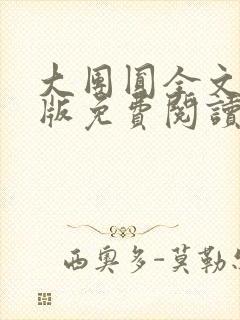 大團圓全文
版免費閱讀
西奧多-莫勒